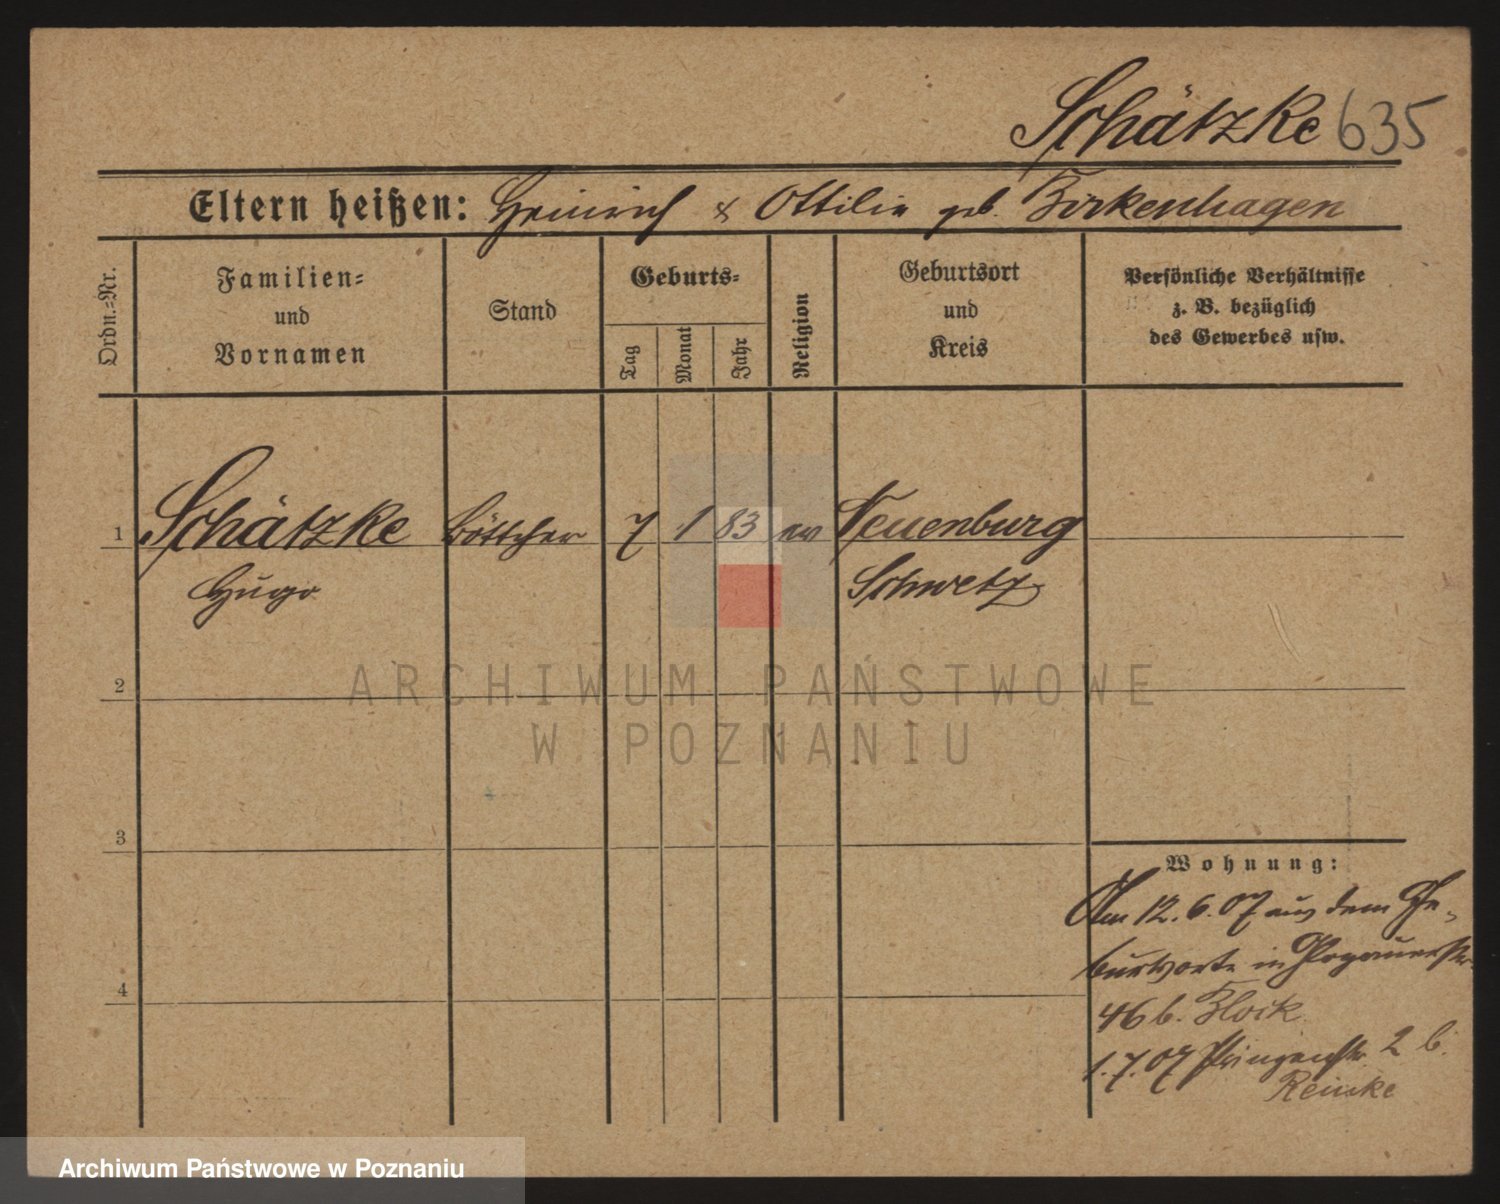 Schätzke 635
Eltern heißen: Heinrich & Ottilie geb. Birkenhagen
Ordn.=Nr.
Familien=
und
Vornamen
Stand
Geburts=
Tag
Monat
Jahr
Religion
Geburtsort
und
Kreis
Persönliche Verhältnisse
z. B. bezüglich
des Gewerbes usw.
1 Schätzke Böttcher 7 1 83 ev Neuenburg
Hugo Schwetz
2
ARCHIWUM PAŃSTWOWE
W POZNANIU
3
Wohnung:
Am 12.6.07 aus dem Ge-
burtsorte in
4
46 b. Block
1.7.07 Prinzenstr. 2 b.
Reinke
Archiwum Państwowe w Poznaniu